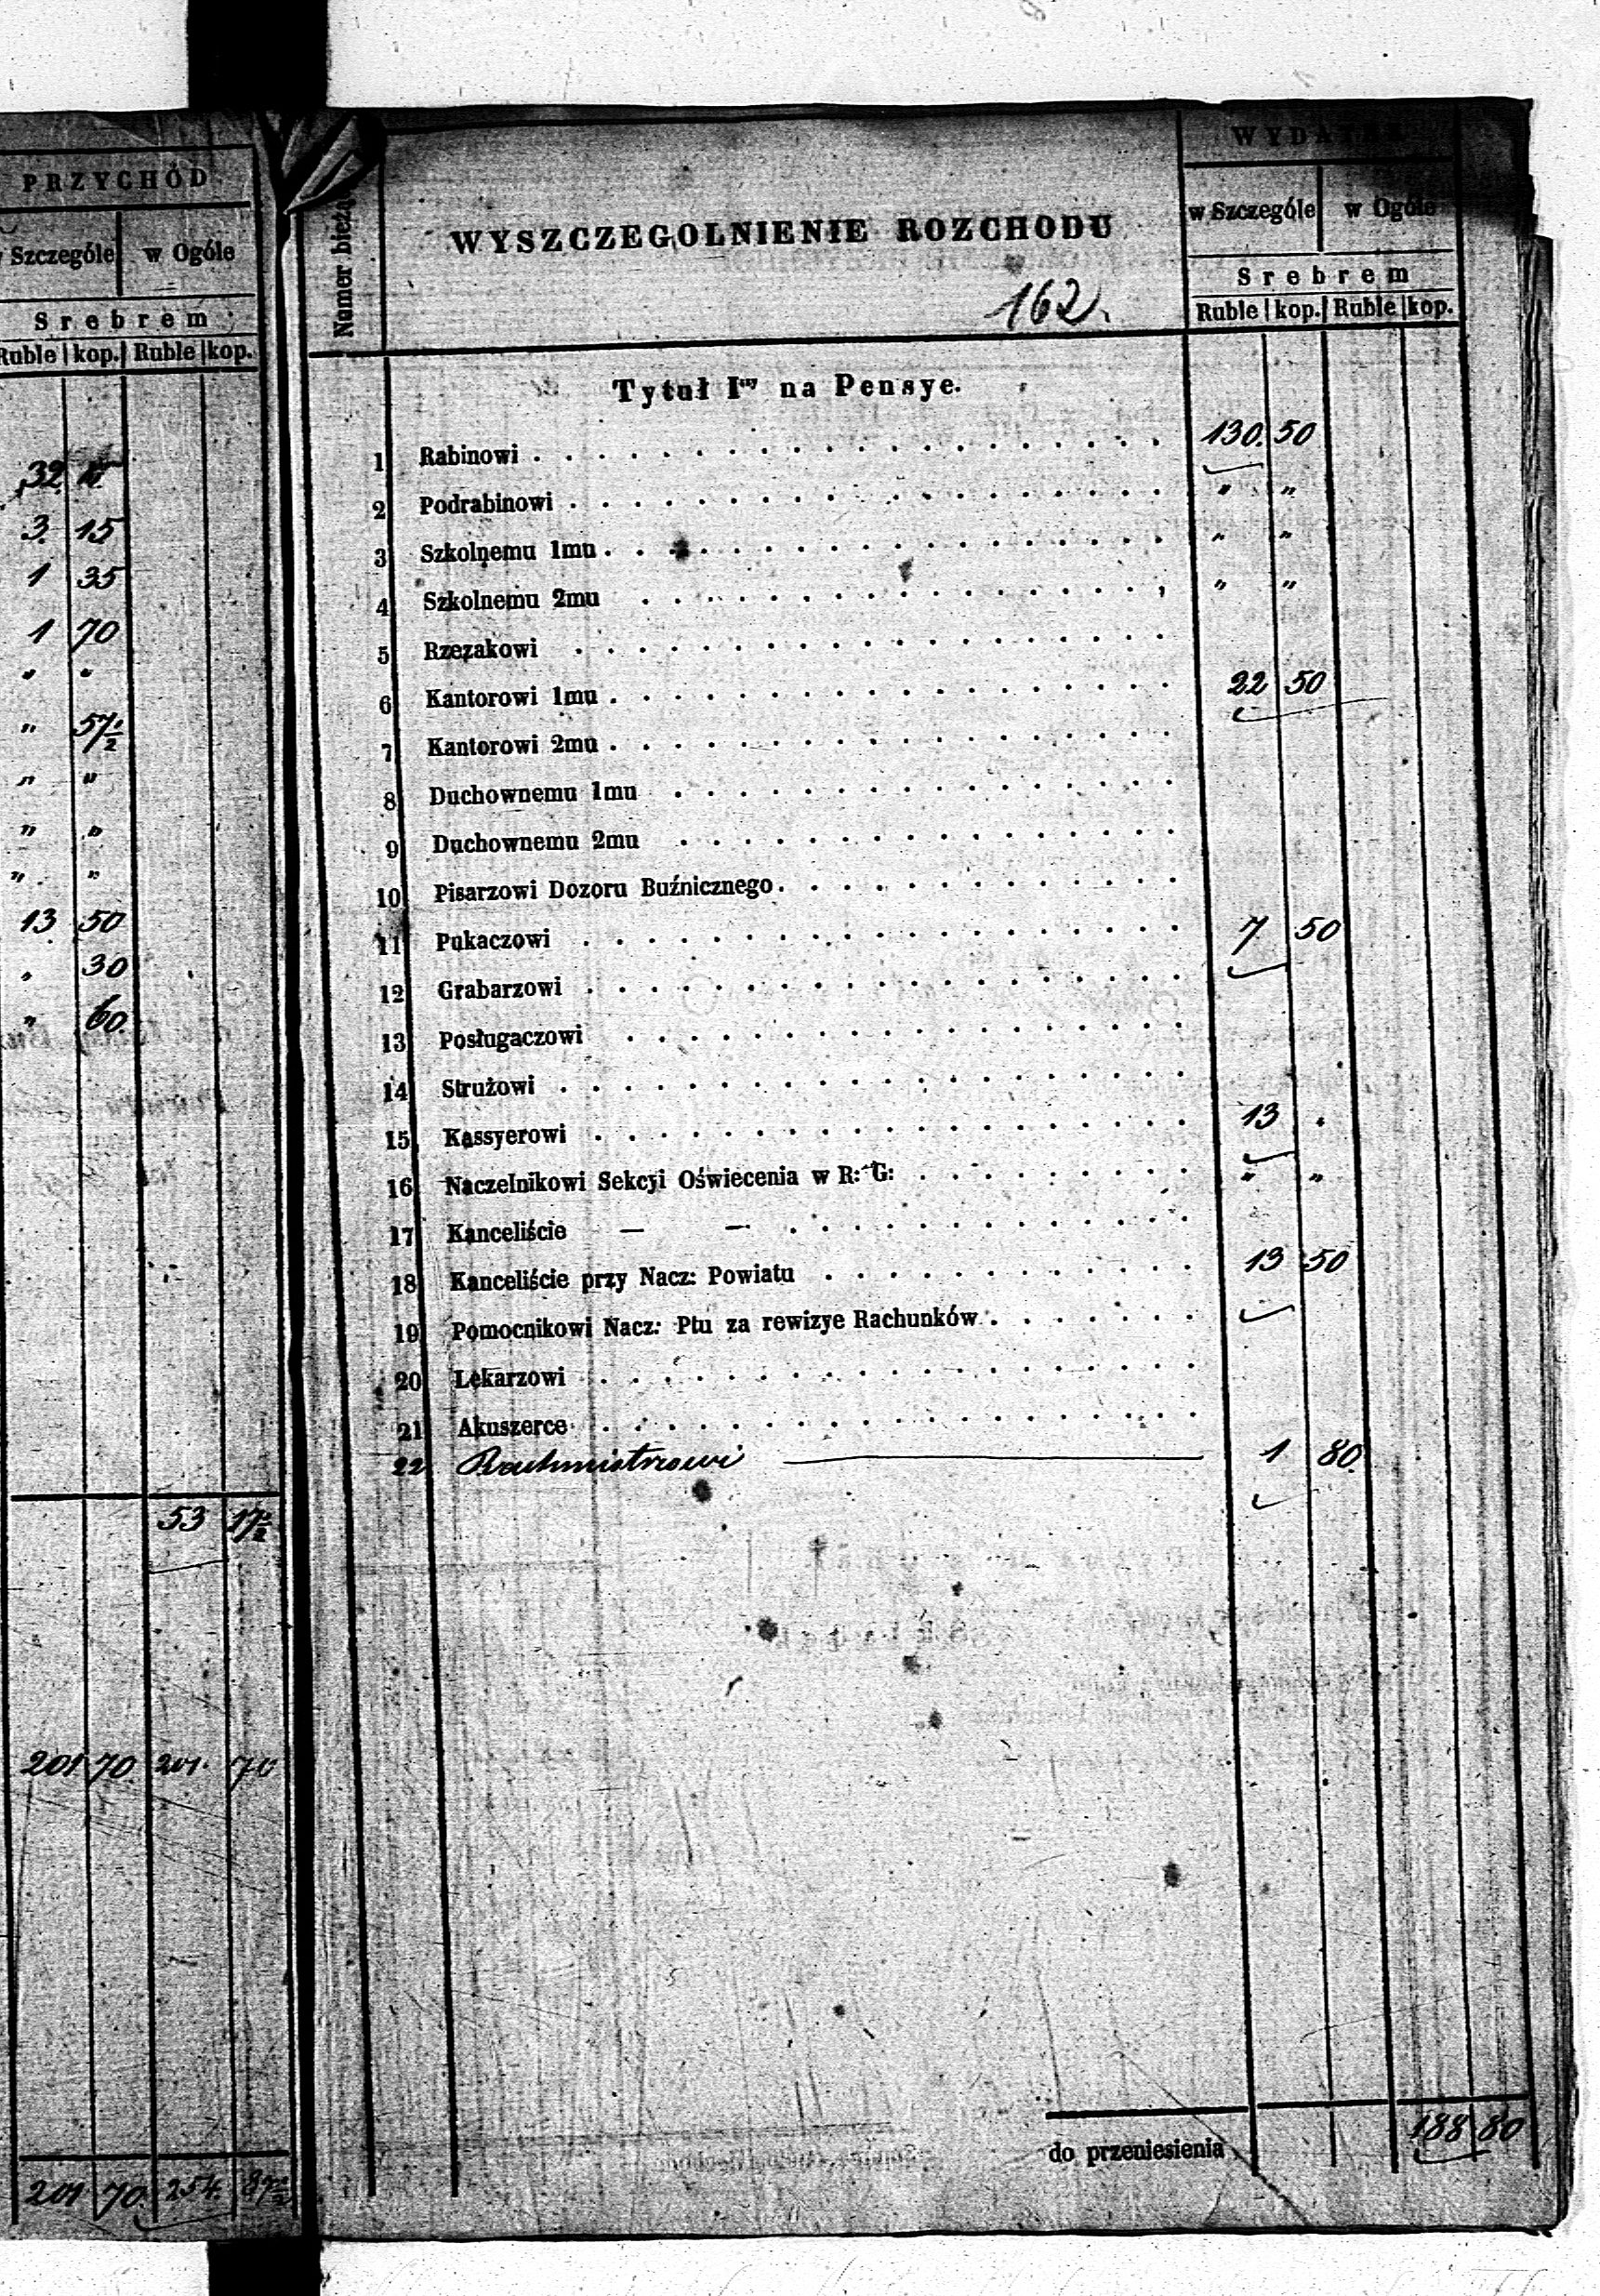 PRZYCHÓD
Szczególe w Ogóle
Srebrem
Ruble kop. Ruble kop.
32
3. 15
1 35
1 70
" "
" 57½
" "
" "
" "
13 50
" 30
" 60
53 17½
201 70 201. 70
201 70 254. 87½
Numer bieżą
WYSZCZEGOLNIENIE ROZCHODU
162.
WYDATEK
w Szczególe w Ogóle
Srebrem
Ruble kop. Ruble kop.
Tytuł Iwy na Pensye.
1 Rabinowi 130. 50
2 Podrabinowi " "
3 Szkolnemu 1mu " "
4 Szkolnemu 2mu " "
5 Rzezakowi
6 Kantorowi 1mu 22 50
7 Kantorowi 2mu
8 Duchownemu 1mu
9 Duchownemu 2mu
10 Pisarzowi Dozoru Buźnicznego
11 Pukaczowi 7 50
12 Grabarzowi
13 Posługaczowi
14 Strużowi
15 Kassyerowi 13 "
16 Naczelnikowi Sekcyi Oświecenia w R: G: " "
17 Kanceliście — —
18 Kanceliście przy Nacz: Powiatu 13 50
19 Pomocnikowi Nacz: Ptu za rewizye Rachunków
20 Lekarzowi
21 Akuszerce
22 Rachmistrzowi 1 80
do przeniesienia 188 80